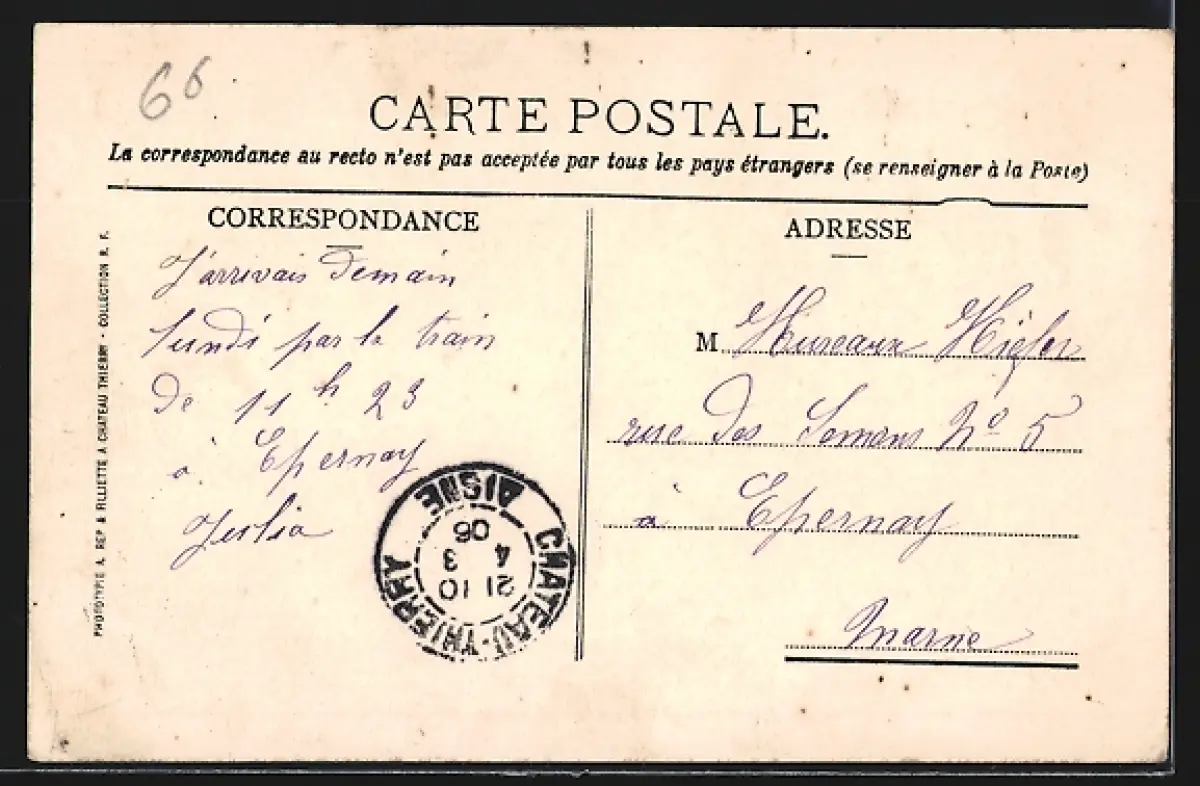 66
CARTE POSTALE.
La correspondance au recto n'est pas acceptée par tous les pays étrangers (se renseigner à la Poste)
CORRESPONDANCE
J'arrivais demain
lundi par le train
de 11 h 23
à Epernay
Julia
ADRESSE
M
rue des Semons No 5
à Epernay
Marne
CHATEAU-THIERRY
AISNE
21 10
4 3
06
PHOTOTYPIE A. REP & FILLIETTE A CHATEAU THIERRY - COLLECTION R. F.